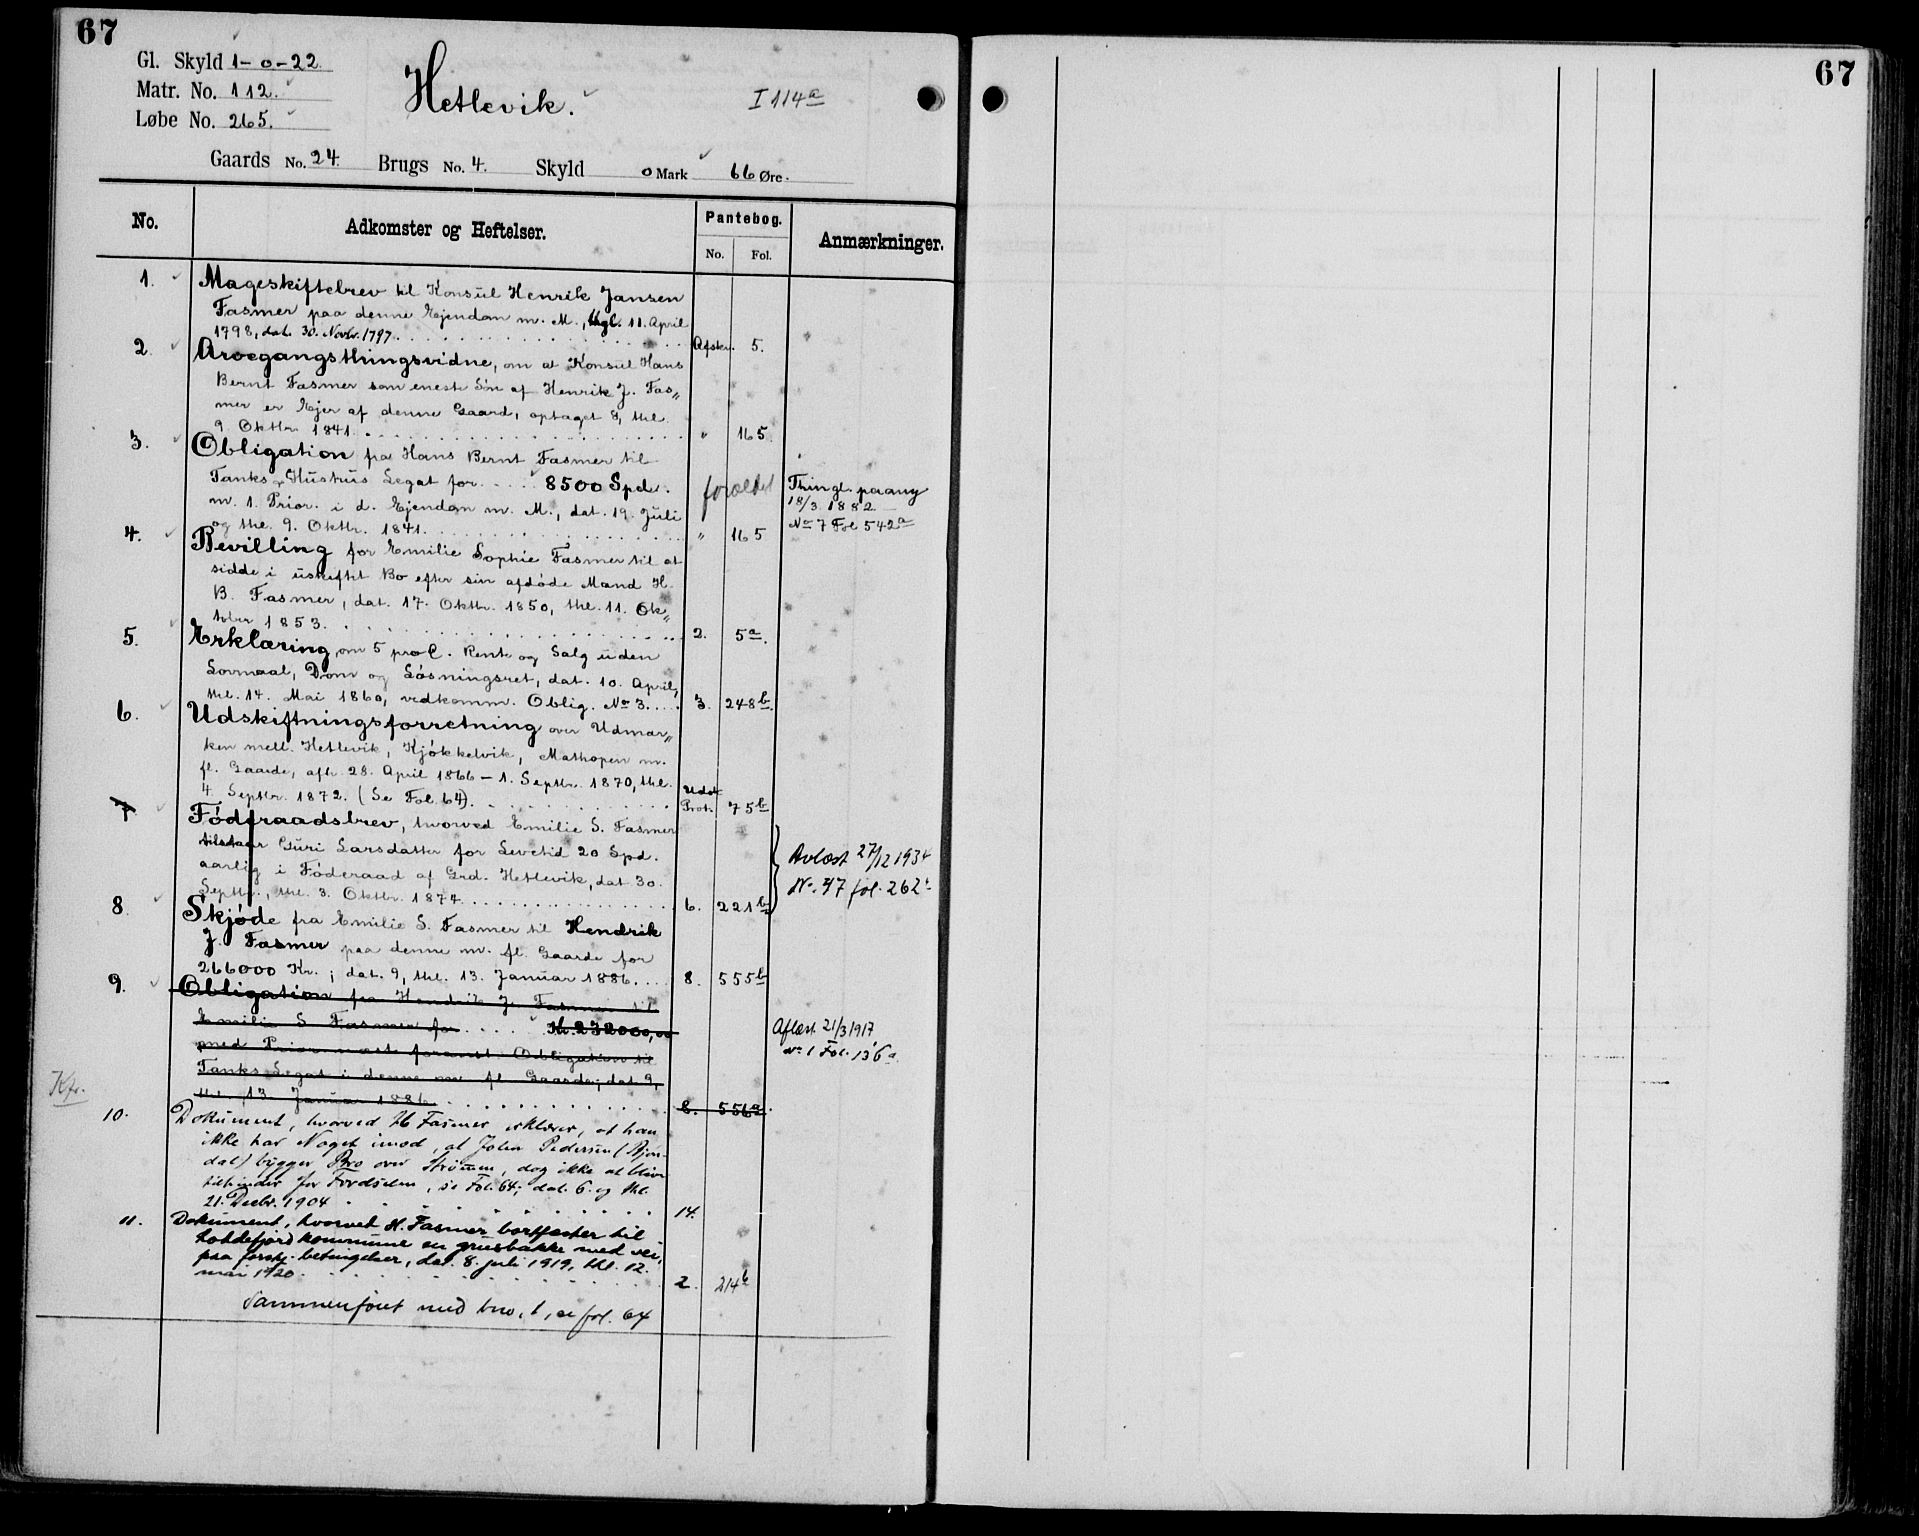 67
67
Gl. Skyld 1-0-22.
Matr. No. 112.
Løbe No. 265.
Hetlevik.
I 114a
Gaards No. 24. Brugs No. 4. Skyld 0 Mark 66 Øre.
No.
Adkomster og Heftelser.
Pantebog.
No. Fol.
Anmærkninger.
1. Mageskiftebrev til Konsul Henrik Jansen
Fasmer paa denne Ejendom m. M., thgl. 11. April
1798, dat. 30. Novbr. 1797. Afskr. 5.
2. Arvegangsthingsvidne, om at Konsul Hans
Bernt Fasmer som eneste Søn af Henrik J. Fas„
mer er Ejer af denne Gaard, optaget 8, thl.
9. Oktbr. 1841. " 165.
3. Obligation fra Hans Bernt Fasmer til
Tanks Hustrus Legat for 8500 Spd.
m. 1. Prior. i d. Ejendom m. M., dat. 19. Juli
og thl. 9. Oktbr. 1841. " 165
forældet
Thingl. paany
18/3 1882
No 7 Fol 542a
4. Bevilling for Emilie Sophie Fasmer til at
sidde i uskiftet Bo efter sin afdøde Mand H.
B. Fasmer, dat. 17. Oktbr. 1850, thl. 11. Ok„
tober 1853. 2. 5a.
5. Erklæring om 5 pro C. Rente og Salg uden
Lovmaal, Dom og Løsningsret, dat. 10. April,
thl. 14. Mai 1860, vedkomm. Oblig. No 3. 3. 248b.
6. Udskiftningsforretning over Udmar„
ken mell. Hetlevik, Kjøkkelvik, Mathopen m.
fl. Gaarde, afh. 28. April 1866 - 1. Septbr. 1870, thl.
4. Septbr. 1872. (Se Fol. 64). Udsk. Prot. 75b
7 Føderaadsbrev, hvorved Emilie S. Fasmer
tilstaar Guri Larsdatter for Levetid 20 Spd.
aarlig i Føderaad af Grd. Hetlevik, dat. 30.
Septbr., thl. 3. Oktbr. 1874. 6. 221b
Avlæst 27/12 1934
No. 47 fol. 262
8. Skjøde fra Emilie S. Fasmer til Hendrik
J. Fasmer paa denne m. fl. Gaarde for
266000 Kr.; dat. 9, thl. 13. Januar 1886. 8. 555b
9. Obligation fra Hendrik J. Fasmer til
Emilie S Fasmer for Kr. 232000,00
med Prior næst foranst. Obligation til
Tanks Legat i denne m. fl. Gaarde; dat. 9,
thl. 13. Januar 1886. 8. 556a.
Aflæst 21/3 1917,
No 1 Fol. 136a.
10. Dokument, hvorved H Fasmer erklærer, at han
ikke har Noget imod, at John Pedersen (Bjøn-
dal) bygger Bro over Strømmen, dog ikke at blive
tilhinder for Færdselen, se Fol. 64; dat. 6. og thl.
21. Decbr. 1904 14.
11. Dokument, hvorved H. Fasmer bortfester til
kommune en grusbakke med vei,
paa forskj. betingelser, dat. 8. juli 1919, thl. 12.
mai 1920. 2. 214b
Sammenføiet med bno. 1, se fol. 64